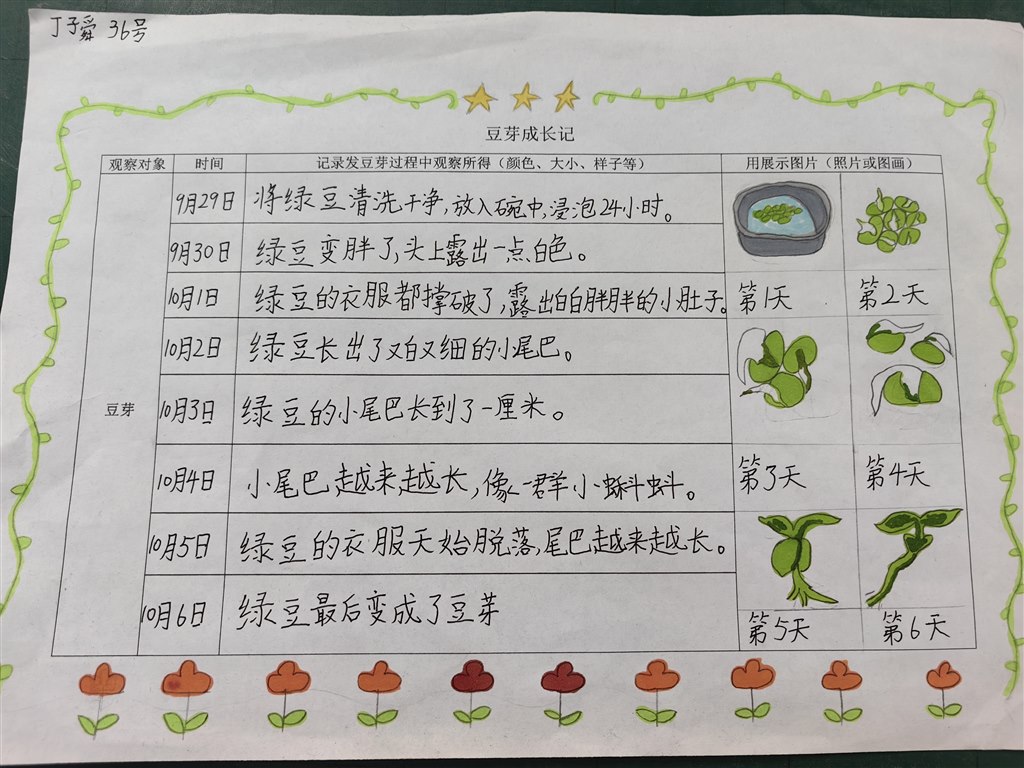 丁子舜 36号
豆芽成长记
观察对象 时间 记录发豆芽过程中观察所得（颜色、大小、样子等） 用展示图片（照片或图画）
豆芽
9月29日 将绿豆清洗干净,放入碗中,浸泡24小时。
9月30日 绿豆变胖了,头上露出一点白色。
10月1日 绿豆的衣服都撑破了,露出白白胖胖的小肚子。
第1天 第2天
10月2日 绿豆长出了又白又细的小尾巴。
10月3日 绿豆的小尾巴长到了一厘米。
10月4日 小尾巴越来越长,像一群小蝌蚪。
第3天 第4天
10月5日 绿豆的衣服天始脱落,尾巴越来越长。
10月6日 绿豆最后变成了豆芽
第5天 第6天